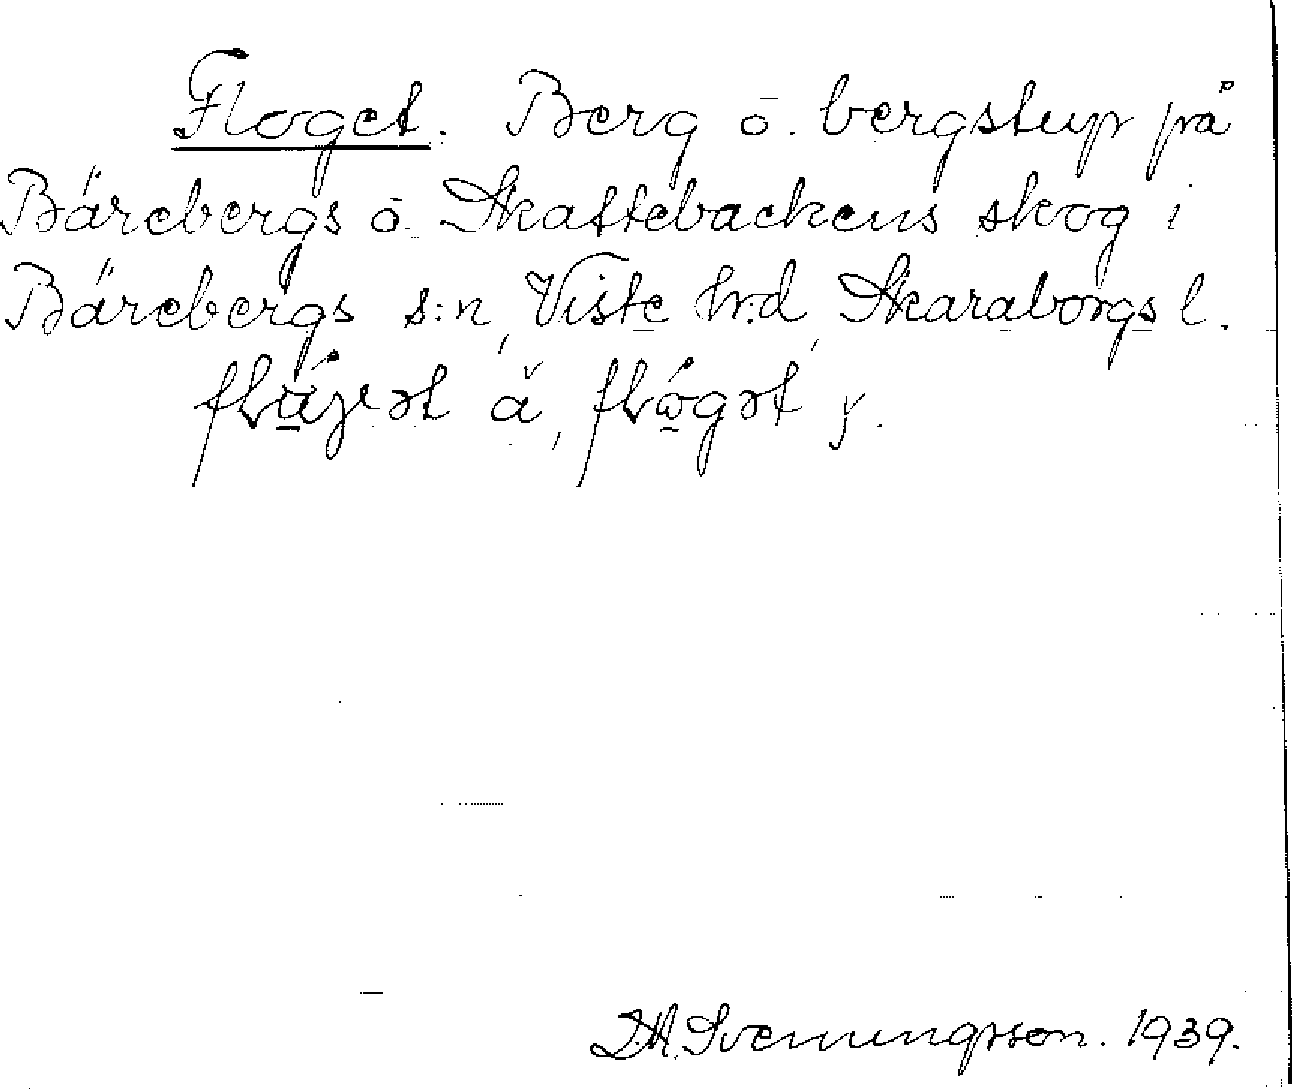 Floget. Berg o. bergstup på
Bärebergs o. Skattebackens skog i
Bärebergs s:n, Viste hr:d Skaraborgs l.
å, y.
Svenningsson. 1939.